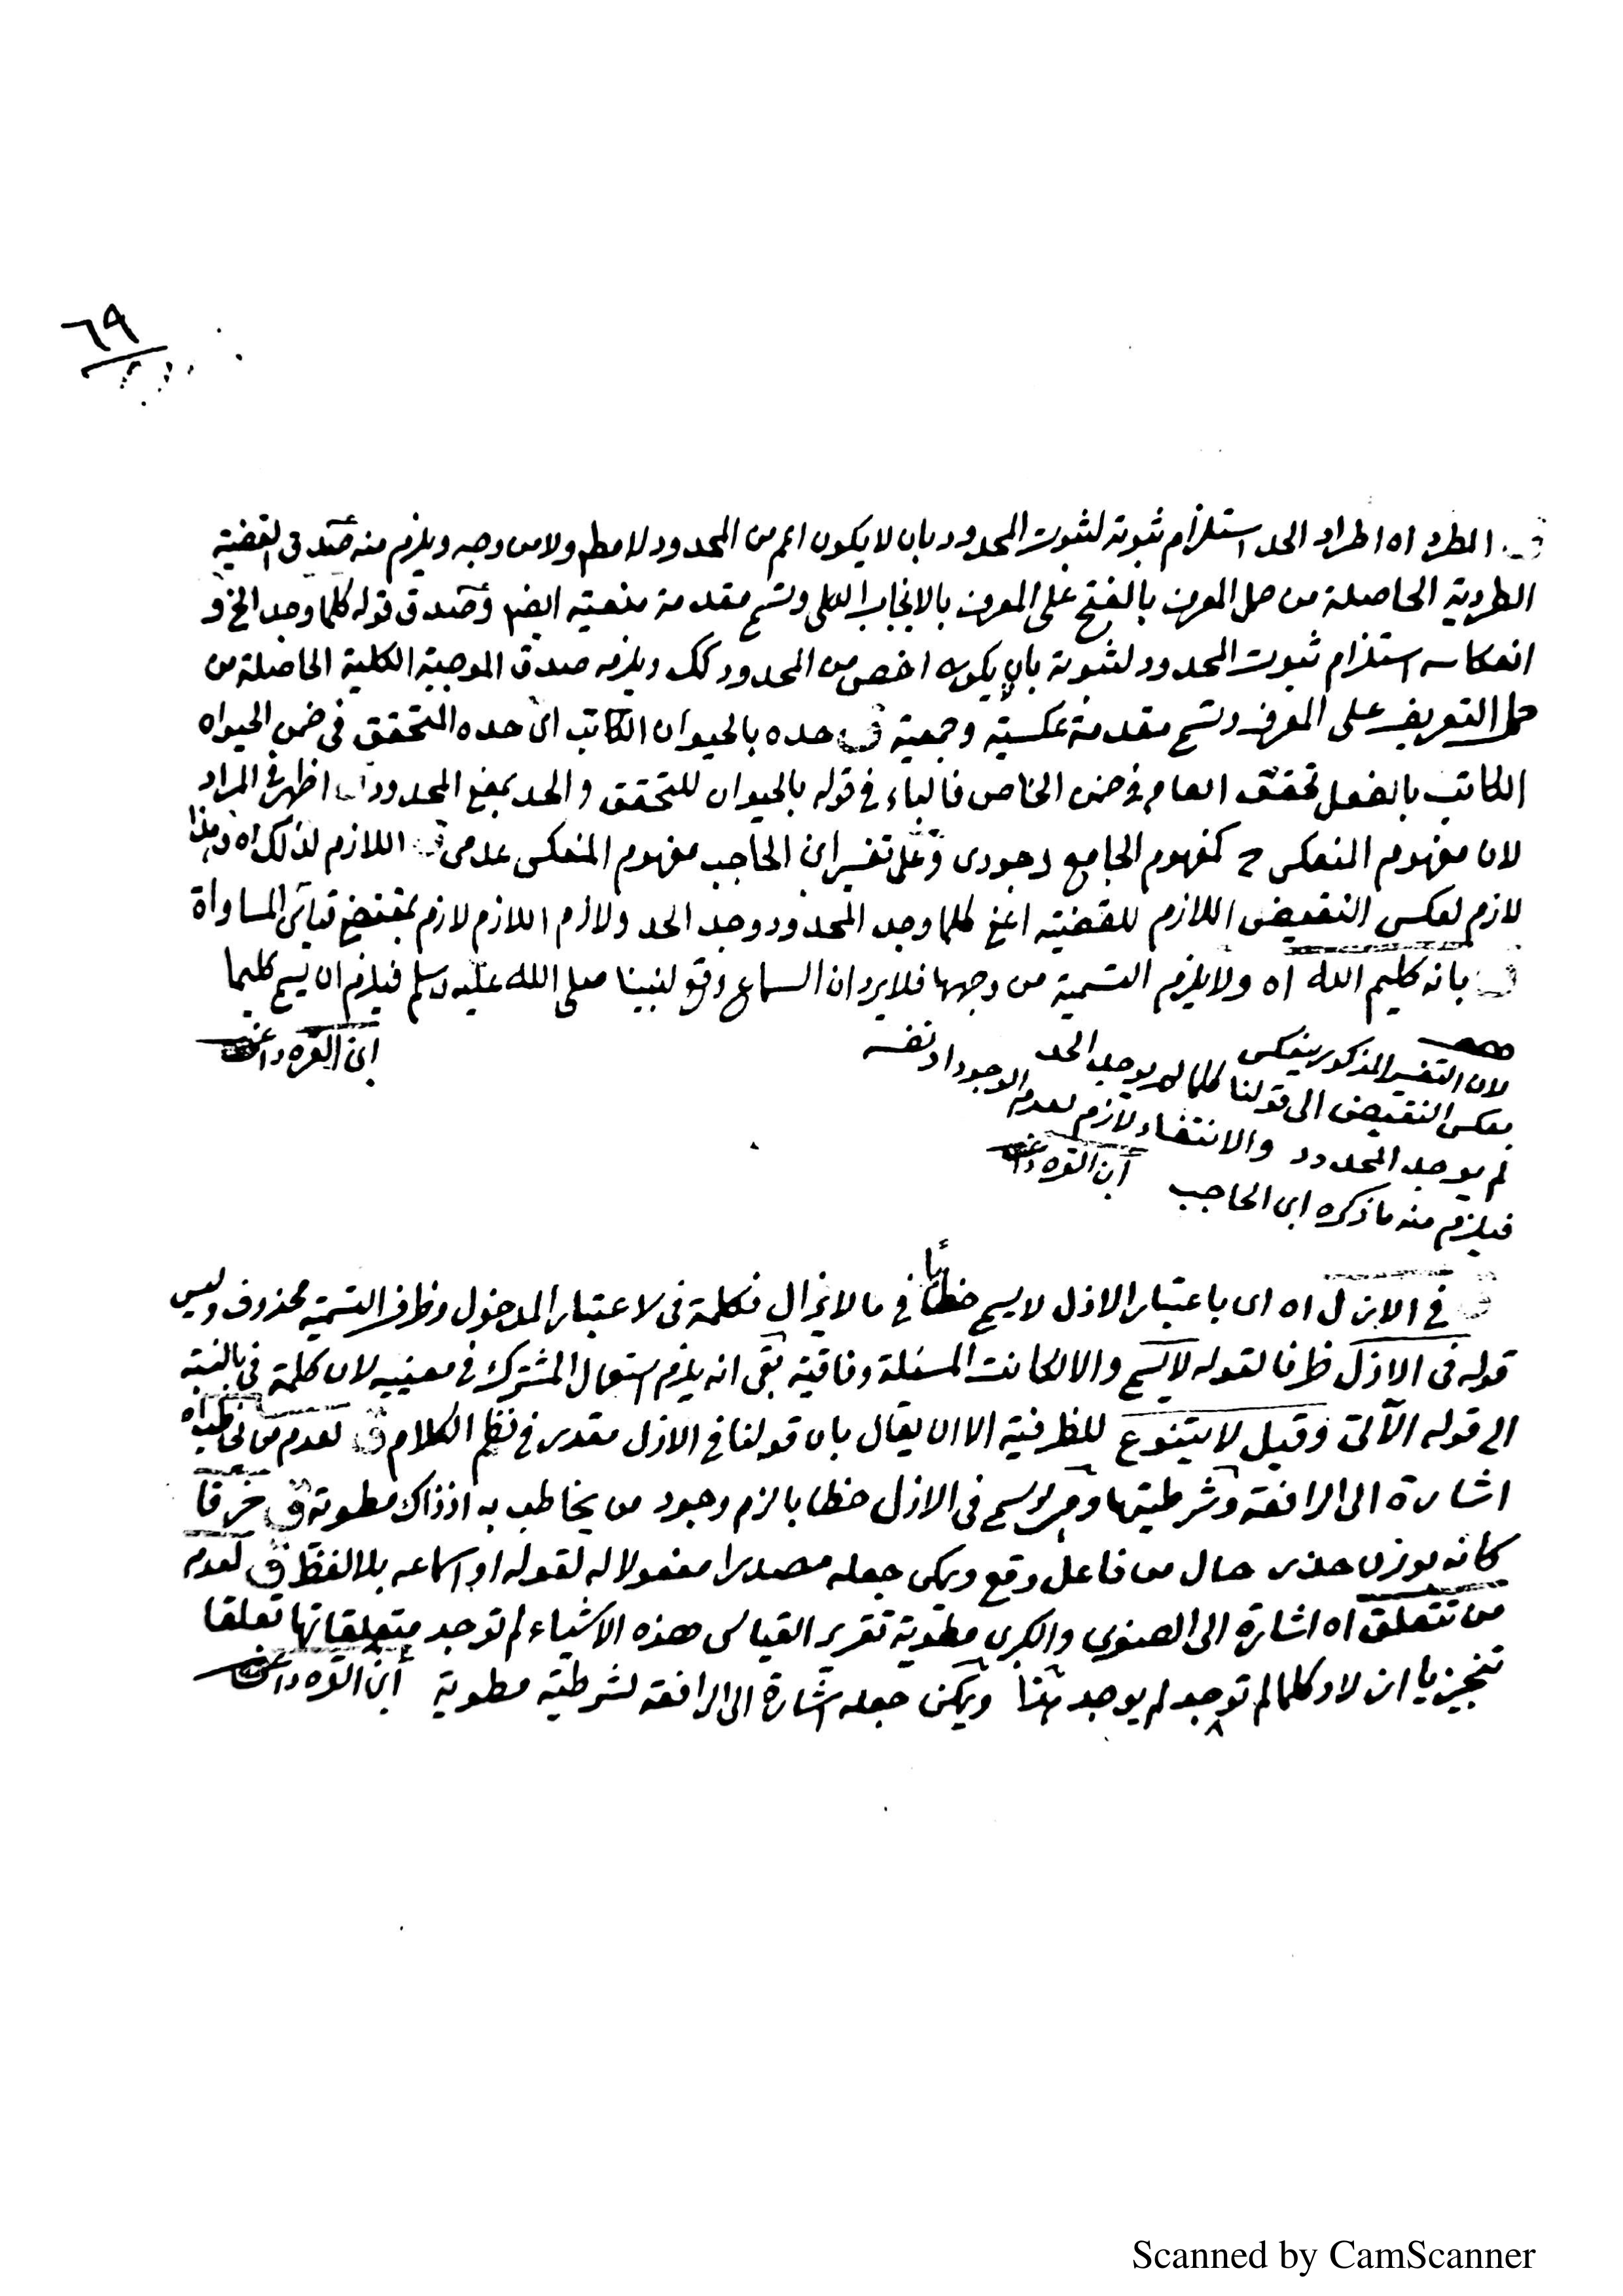 ٦٩
ق المطرد اه اطراد الحد استلزام ثبوته لثبوت المحدود بان لا يكون اعم من المحدود لا مطم ولا من وجه ويلزم منه صدق القضية
الطردية الحاصلة من حمل المعرف بالفتح على المعرف بالايجاب الكلي وتسمى مقدمة منعية ايضم وصدق قوله كلما وجد الخ و
انعكاسه استلزام ثبوت المحدود لثبوته بان لا يكون اخص من المحدود كك ويلزمه صدق الموجبة الكلية الحاصلة من
حمل التعريف على المعرف وتسمى مقدمة عكسية وجمعية ق حده بالحيوان الكاتب اى حده المتحقق في ضمن الحيوان
الكاتب بالفعل تحقق العام في ضمن الخاص فالباء في قوله بالحيوان للتحقق والحد بمعنى المحدود ق اظهر في المراد
لان مفهوم المنعكس ح كمفهوم الجامع وجودى وعلى تفسير ابن الحاجب مفهوم المنعكس عدمى ق اللازم لذلك اه وهذا
لازم لعكس النقيض اللازم للقضية اعنى كلما وجد المحدود وجد الحد ولازم اللازم لازم بمقتضى قياس المساواة
ق بانه كليم الله اه ولا يلزم التسمية من وجهها فلا يرد ان السماع وقع لنبينا صلى الله عليه وسلم فيلزم ان يسمى كليما
ابن القره داغى
لان التفسير المذكور ينعكس
بعكس النقيض الى قولنا كلما لم يوجد الحد
لم يوجد المحدود والانتفاء لازم لعدم الوجود او نفسه
فيلزم منه ما ذكره ابن الحاجب ابن القره داغى
ق في الازل اه اى باعتبار الازل لا يسمى خطابا في ما لا يزال فكلمة فى لاعتبار المدخول وظرف التسمية محذوف وليس
قوله فى الازل ظرفا لقوله لا يسمى والا لكانت المسئلة وفاقية بقى انه يلزم استعمال المشترك في معنييه لان كلمة في بالنسبة
الى قوله الآتى وقيل لا يتنوع للظرفية الا ان يقال بان قولنا في الازل مقدر في نظم الكلام ق لعدم من يخاطب اه
اشارة الى الرافعة وشرطيتها وهى لو سمى فى الازل خطابا لزم وجود من يخاطب به اذ ذاك مطوية ق خرقا
كانه بوزن حذر حال من فاعل وقع ويمكن جعله مصدرا مفعولا له لقوله او اسماعه بلا لفظ ق لعدم
من تتعلق اه اشارة الى الصغرى والكبرى مطوية تقرير القياس هذه الاشياء لم توجد متعلقاتها تعلقا
تنجيزيا ازلا وكلما لم توجد لم يوجد ويمكن جعله اشارة الى الرافعة لشرطية مطوية ابن القره داغى
Scanned by CamScanner